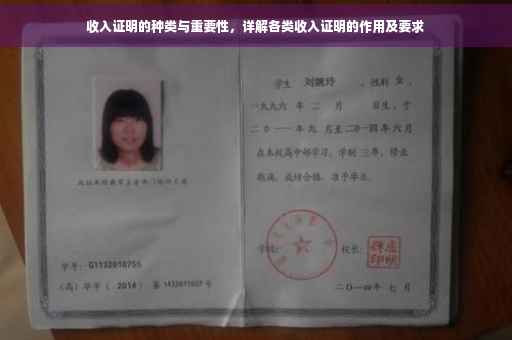 收入证明的种类与重要性，详解各类收入证明的作用及要求
学生 刘婉玲 ，性别 女 ，
一九九六 年 二 月 日生，于
二〇一一 年 九 月至 二〇一四 年 六 月
在本校高中部学习，学制 三 年，修业
期满，成绩合格，准予毕业。
学号： G1132010755
学校：
校长：
（高）毕字〔 2014 〕第 1432011607 号
二〇一四年 七 月